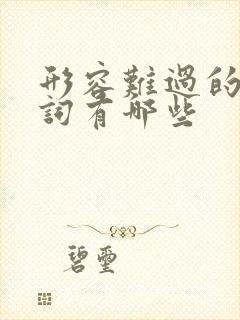 形容難過的
詞有哪些
碧璽